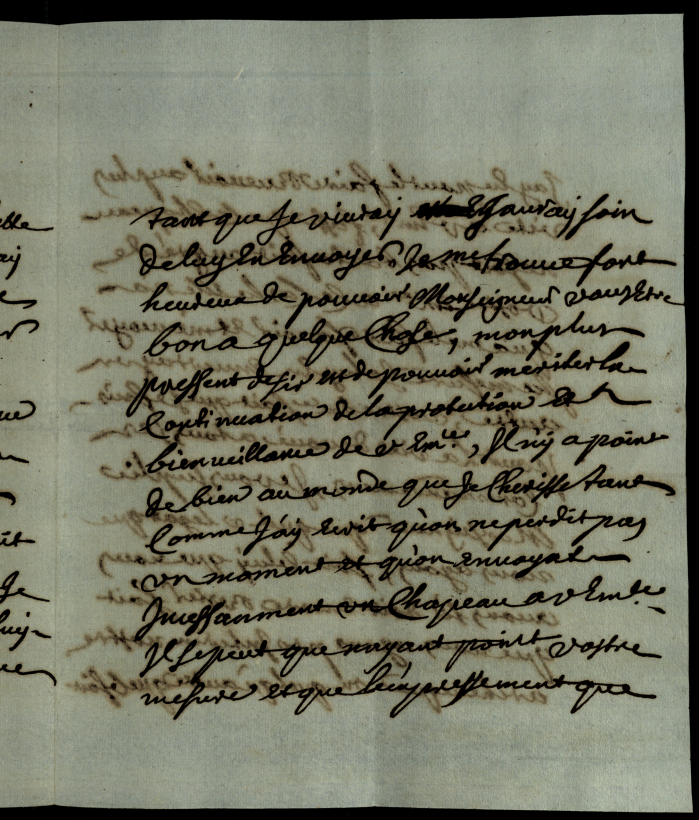 tant que Je viuray et Jauray soin
de luy En Enuoyer. Je me trouue fort
heureux de pouuoir Monseigneur vous Etre
bon a quelque Chose, mon plus
pressent desir est de pouuoir meriter la
Continuation de la protection Et
bienueillance de v Em.ce, Il n'y a point
de bien au monde que Je Cherisse tant
Comme J'ay Ecrit qu'on ne perdit pas
vn moment et qu'on enuoyat
Incessanment vn Chapeau a v Em.ce
Il se peut que n'ayant point vostre
mesure et que l'enpressement que